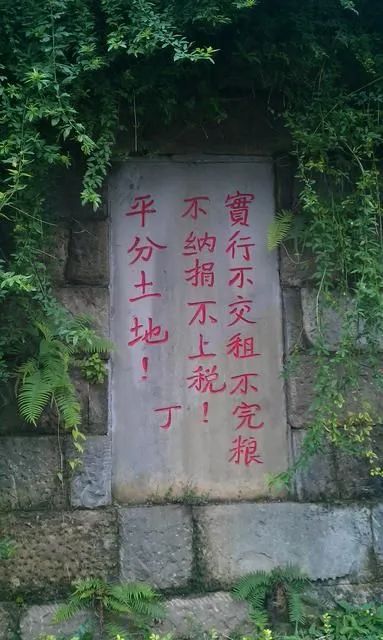 實行不交租不完粮
不纳捐不上税！
丁
平分土地！